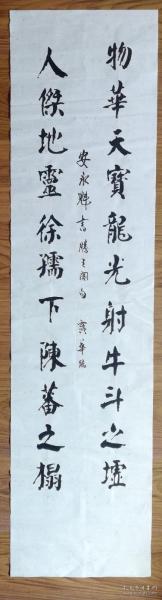 物華天寶龍光射牛斗之墟
人傑地靈徐孺下陳蕃之榻
安永辉書滕王閣句